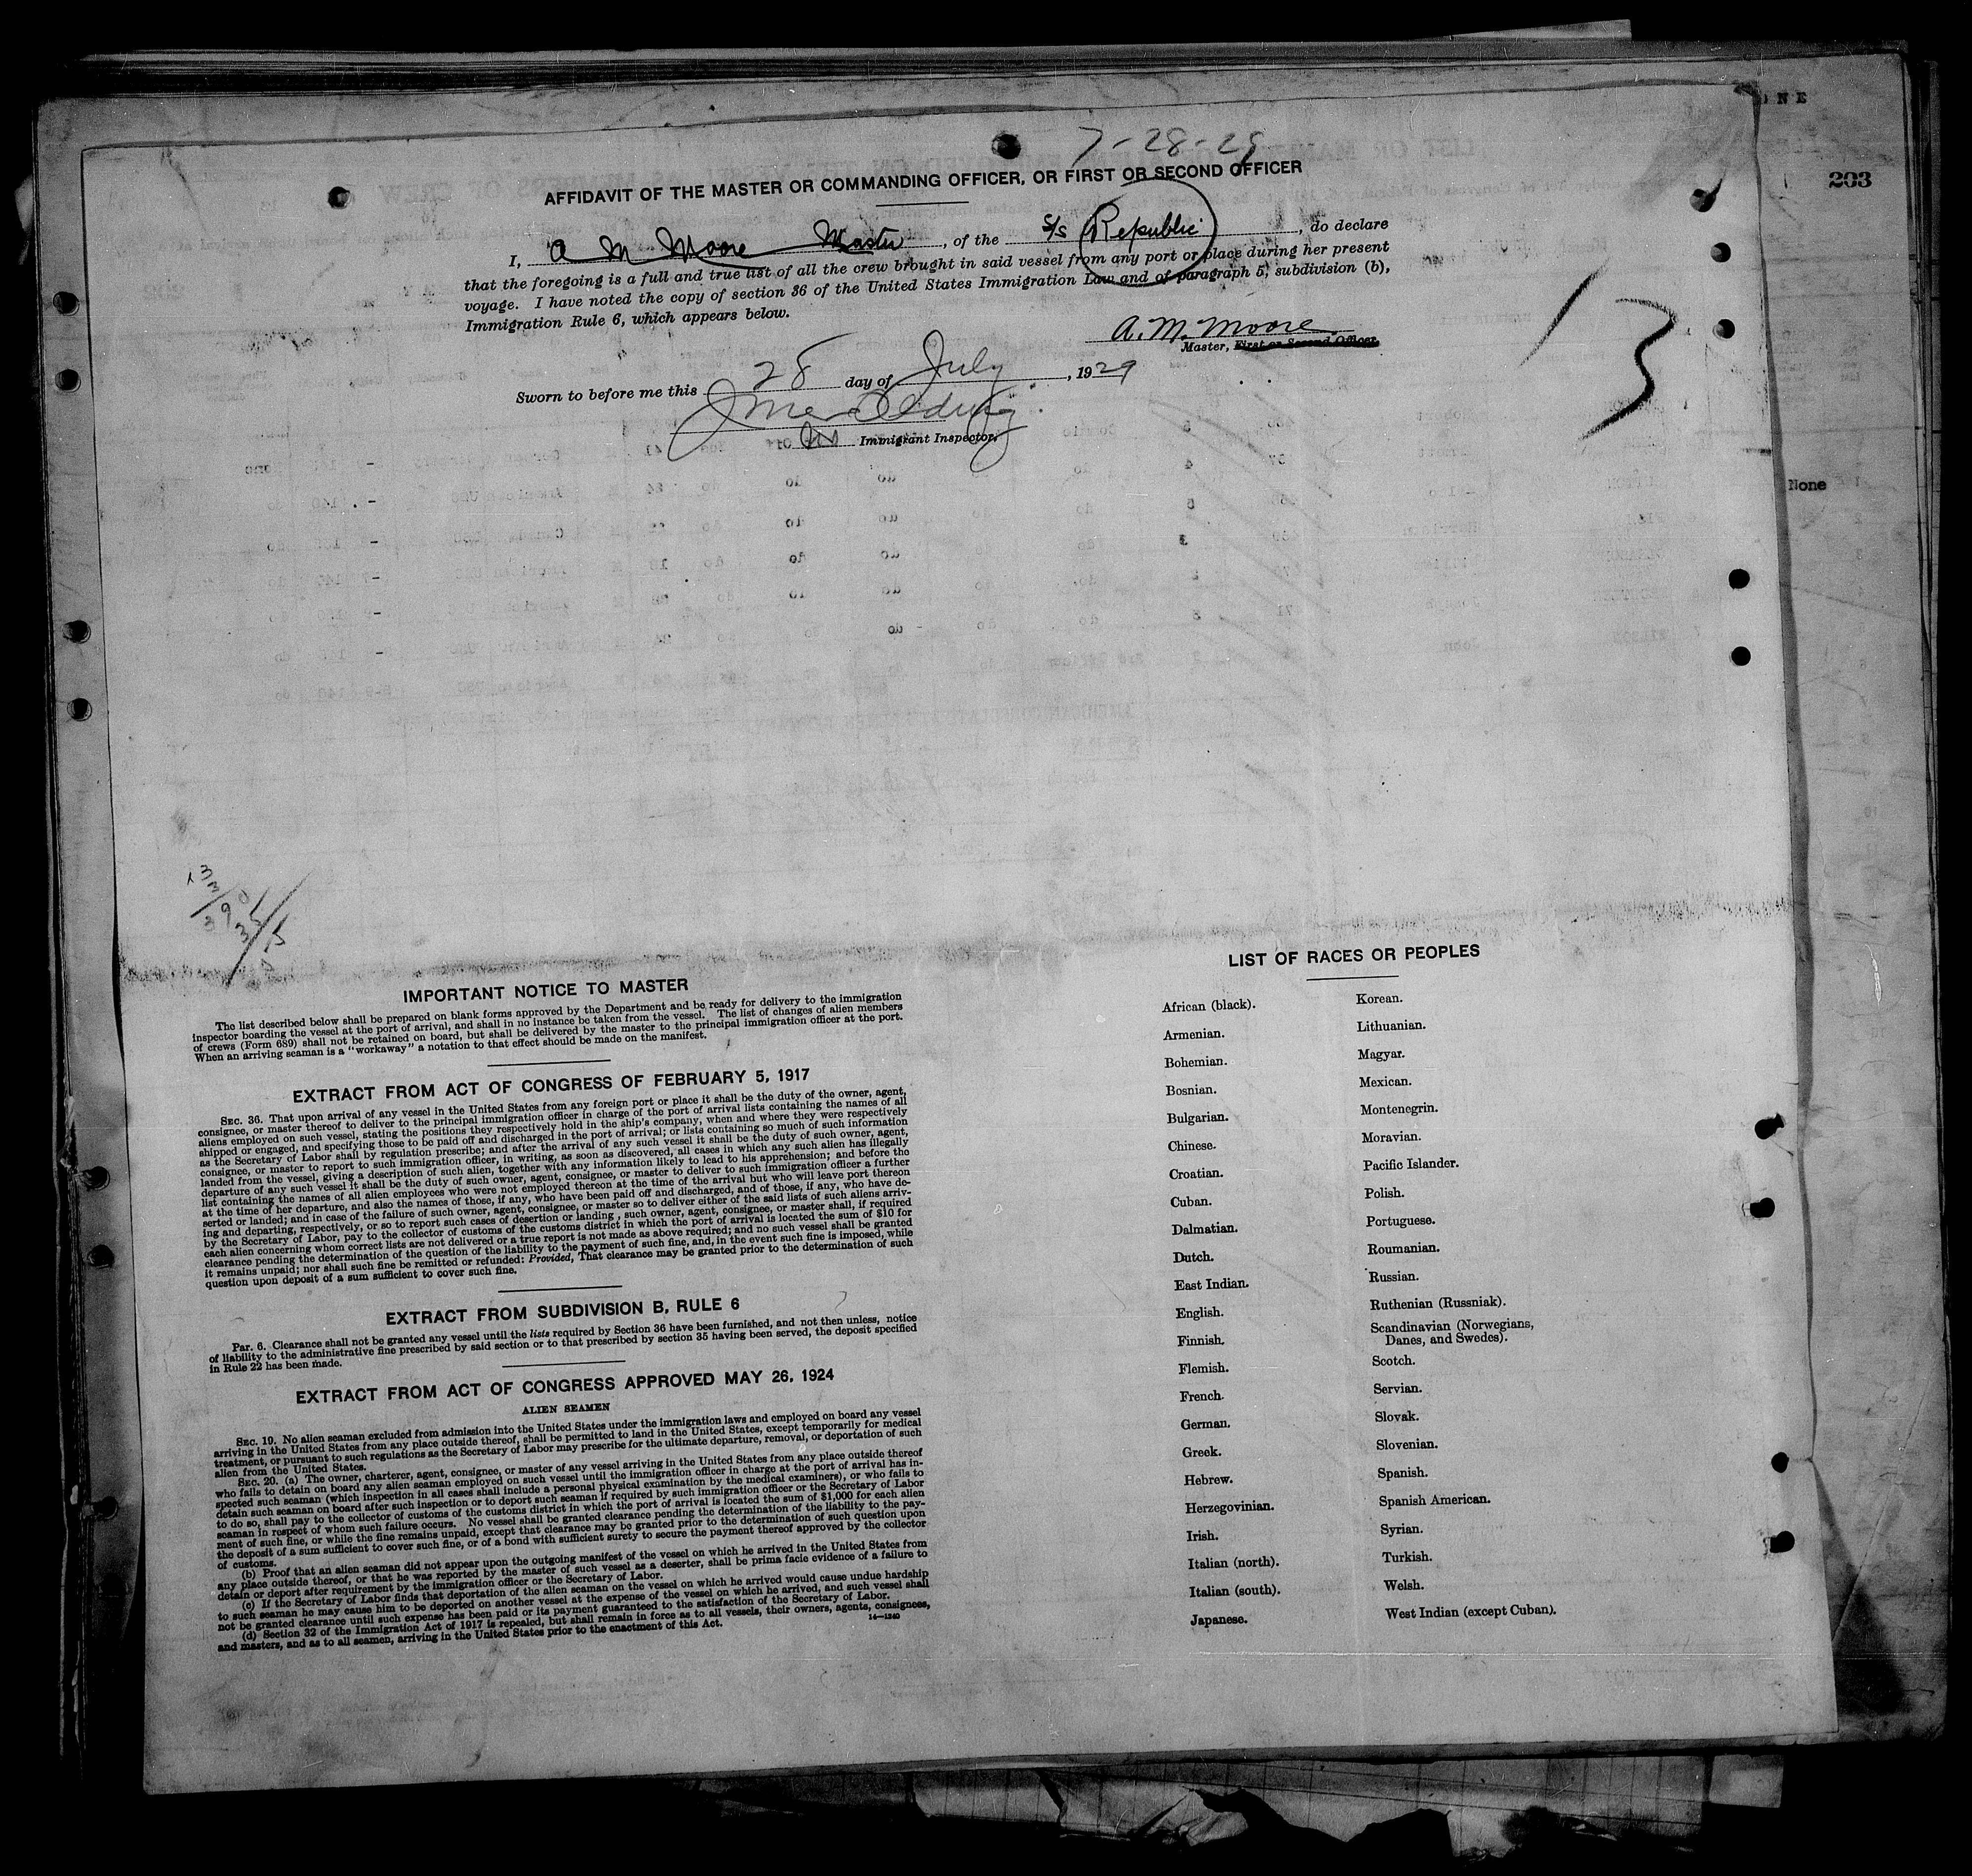 ONE
203
7-28-29
AFFIDAVIT OF THE MASTER OR COMMANDING OFFICER, OR FIRST OR SECOND OFFICER
I, A M Moore Master, of the S/S Republic, do declare
that the foregoing is a full and true list of all the crew brought in said vessel from any port or place during her present
voyage. I have noted the copy of section 36 of the United States Immigration Law and of paragraph 5, subdivision (b),
Immigration Rule 6, which appears below.
A. M. Moore
Master, First or Second Officer.
13
Sworn to before me this 28 day of July, 1929
Immigrant Inspector.
None
IMPORTANT NOTICE TO MASTER
The list described below shall be prepared on blank forms approved by the Department and be ready for delivery to the immigration
inspector boarding the vessel at the port of arrival, and shall in no instance be taken from the vessel. The list of changes of alien members
of crews (Form 689) shall not be retained on board, but shall be delivered by the master to the principal immigration officer at the port.
When an arriving seaman is a "workaway" a notation to that effect should be made on the manifest.
EXTRACT FROM ACT OF CONGRESS OF FEBRUARY 5, 1917
SEC. 36. That upon arrival of any vessel in the United States from any foreign port or place it shall be the duty of the owner, agent,
consignee, or master thereof to deliver to the principal immigration officer in charge of the port of arrival lists containing the names of all
aliens employed on such vessel, stating the positions they respectively hold in the ship's company, when and where they were respectively
shipped or engaged, and specifying those to be paid off and discharged in the port of arrival; or lists containing so much of such information
as the Secretary of Labor shall by regulation prescribe; and after the arrival of any such vessel it shall be the duty of such owner, agent,
consignee, or master to report to such immigration officer, in writing, as soon as discovered, all cases in which any such alien has illegally
landed from the vessel, giving a description of such alien, together with any information likely to lead to his apprehension; and before the
departure of any such vessel it shall be the duty of such owner, agent, consignee, or master to deliver to such immigration officer a further
list containing the names of all alien employees who were not employed thereon at the time of the arrival but who will leave port thereon
at the time of her departure, and also the names of those, if any, who have been paid off and discharged, and of those, if any, who have de-
serted or landed; and in case of the failure of such owner, agent, consignee, or master so to deliver either of the said lists of such aliens arriv-
ing and departing, respectively, or so to report such cases of desertion or landing, such owner, agent, consignee, or master shall, if required
by the Secretary of Labor, pay to the collector of customs of the customs district in which the port of arrival is located the sum of $10 for
each alien concerning whom correct lists are not delivered or a true report is not made as above required; and no such vessel shall be granted
clearance pending the determination of the question of the liability to the payment of such fine, and, in the event such fine is imposed, while
it remains unpaid; nor shall such fine be remitted or refunded: Provided, That clearance may be granted prior to the determination of such
question upon deposit of a sum sufficient to cover such fine.
EXTRACT FROM SUBDIVISION B, RULE 6
Par. 6. Clearance shall not be granted any vessel until the lists required by Section 36 have been furnished, and not then unless, notice
of liability to the administrative fine prescribed by said section or to that prescribed by section 35 having been served, the deposit specified
in Rule 22 has been made.
EXTRACT FROM ACT OF CONGRESS APPROVED MAY 26, 1924
ALIEN SEAMEN
SEC. 19. No alien seaman excluded from admission into the United States under the immigration laws and employed on board any vessel
arriving in the United States from any place outside thereof, shall be permitted to land in the United States, except temporarily for medical
treatment, or pursuant to such regulations as the Secretary of Labor may prescribe for the ultimate departure, removal, or deportation of such
alien from the United States.
SEC. 20. (a) The owner, charterer, agent, consignee, or master of any vessel arriving in the United States from any place outside thereof
who fails to detain on board any alien seaman employed on such vessel until the immigration officer in charge at the port of arrival has in-
spected such seaman (which inspection in all cases shall include a personal physical examination by the medical examiners), or who fails to
detain such seaman on board after such inspection or to deport such seaman if required by such immigration officer or the Secretary of Labor
to do so, shall pay to the collector of customs of the customs district in which the port of arrival is located the sum of $1,000 for each alien
seaman in respect of whom such failure occurs. No vessel shall be granted clearance pending the determination of the liability to the pay-
ment of such fine, or while the fine remains unpaid, except that clearance may be granted prior to the determination of such question upon
the deposit of a sum sufficient to cover such fine, or of a bond with sufficient surety to secure the payment thereof approved by the collector
of customs.
(b) Proof that an alien seaman did not appear upon the outgoing manifest of the vessel on which he arrived in the United States from
any place outside thereof, or that he was reported by the master of such vessel as a deserter, shall be prima facie evidence of a failure to
detain or deport after requirement by the immigration officer or the Secretary of Labor.
(c) If the Secretary of Labor finds that deportation of the alien seaman on the vessel on which he arrived would cause undue hardship
to such seaman he may cause him to be deported on another vessel at the expense of the vessel on which he arrived, and such vessel shall
not be granted clearance until such expense has been paid or its payment guaranteed to the satisfaction of the Secretary of Labor.
(d) Section 32 of the Immigration Act of 1917 is repealed, but shall remain in force as to all vessels, their owners, agents, consignees,
and masters, and as to all seamen, arriving in the United States prior to the enactment of this Act.
14—1240
LIST OF RACES OR PEOPLES
African (black).
Armenian.
Bohemian.
Bosnian.
Bulgarian.
Chinese.
Croatian.
Cuban.
Dalmatian.
Dutch.
East Indian.
English.
Finnish.
Flemish.
French.
German.
Greek.
Hebrew.
Herzegovinian.
Irish.
Italian (north).
Italian (south).
Japanese.
Korean.
Lithuanian.
Magyar.
Mexican.
Montenegrin.
Moravian.
Pacific Islander.
Polish.
Portuguese.
Roumanian.
Russian.
Ruthenian (Russniak).
Scandinavian (Norwegians,
Danes, and Swedes).
Scotch.
Servian.
Slovak.
Slovenian.
Spanish.
Spanish American.
Syrian.
Turkish.
Welsh.
West Indian (except Cuban).